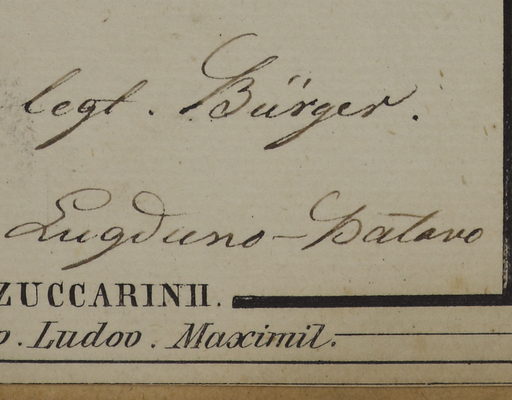 legt. Bürger.
Lugduno-Batavo
ZUCCARINII.
o. Ludov. Maximil.